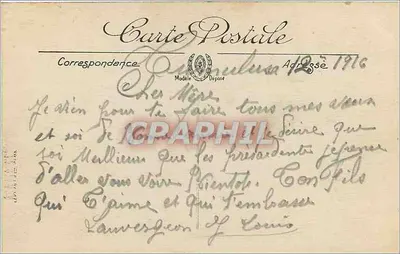 Carte Postale
Correspondance
Adresse
Modèle Déposé
12 1916
Mère
Je vien pour te faire tous mes vœux
et soi de que
soi Meilleure que les présidentes j'espere
d'aller vous voire Bientote. Ton fils
qui T'aime et qui t'embrasse
Lauvergeon Louis
CPAPHIL